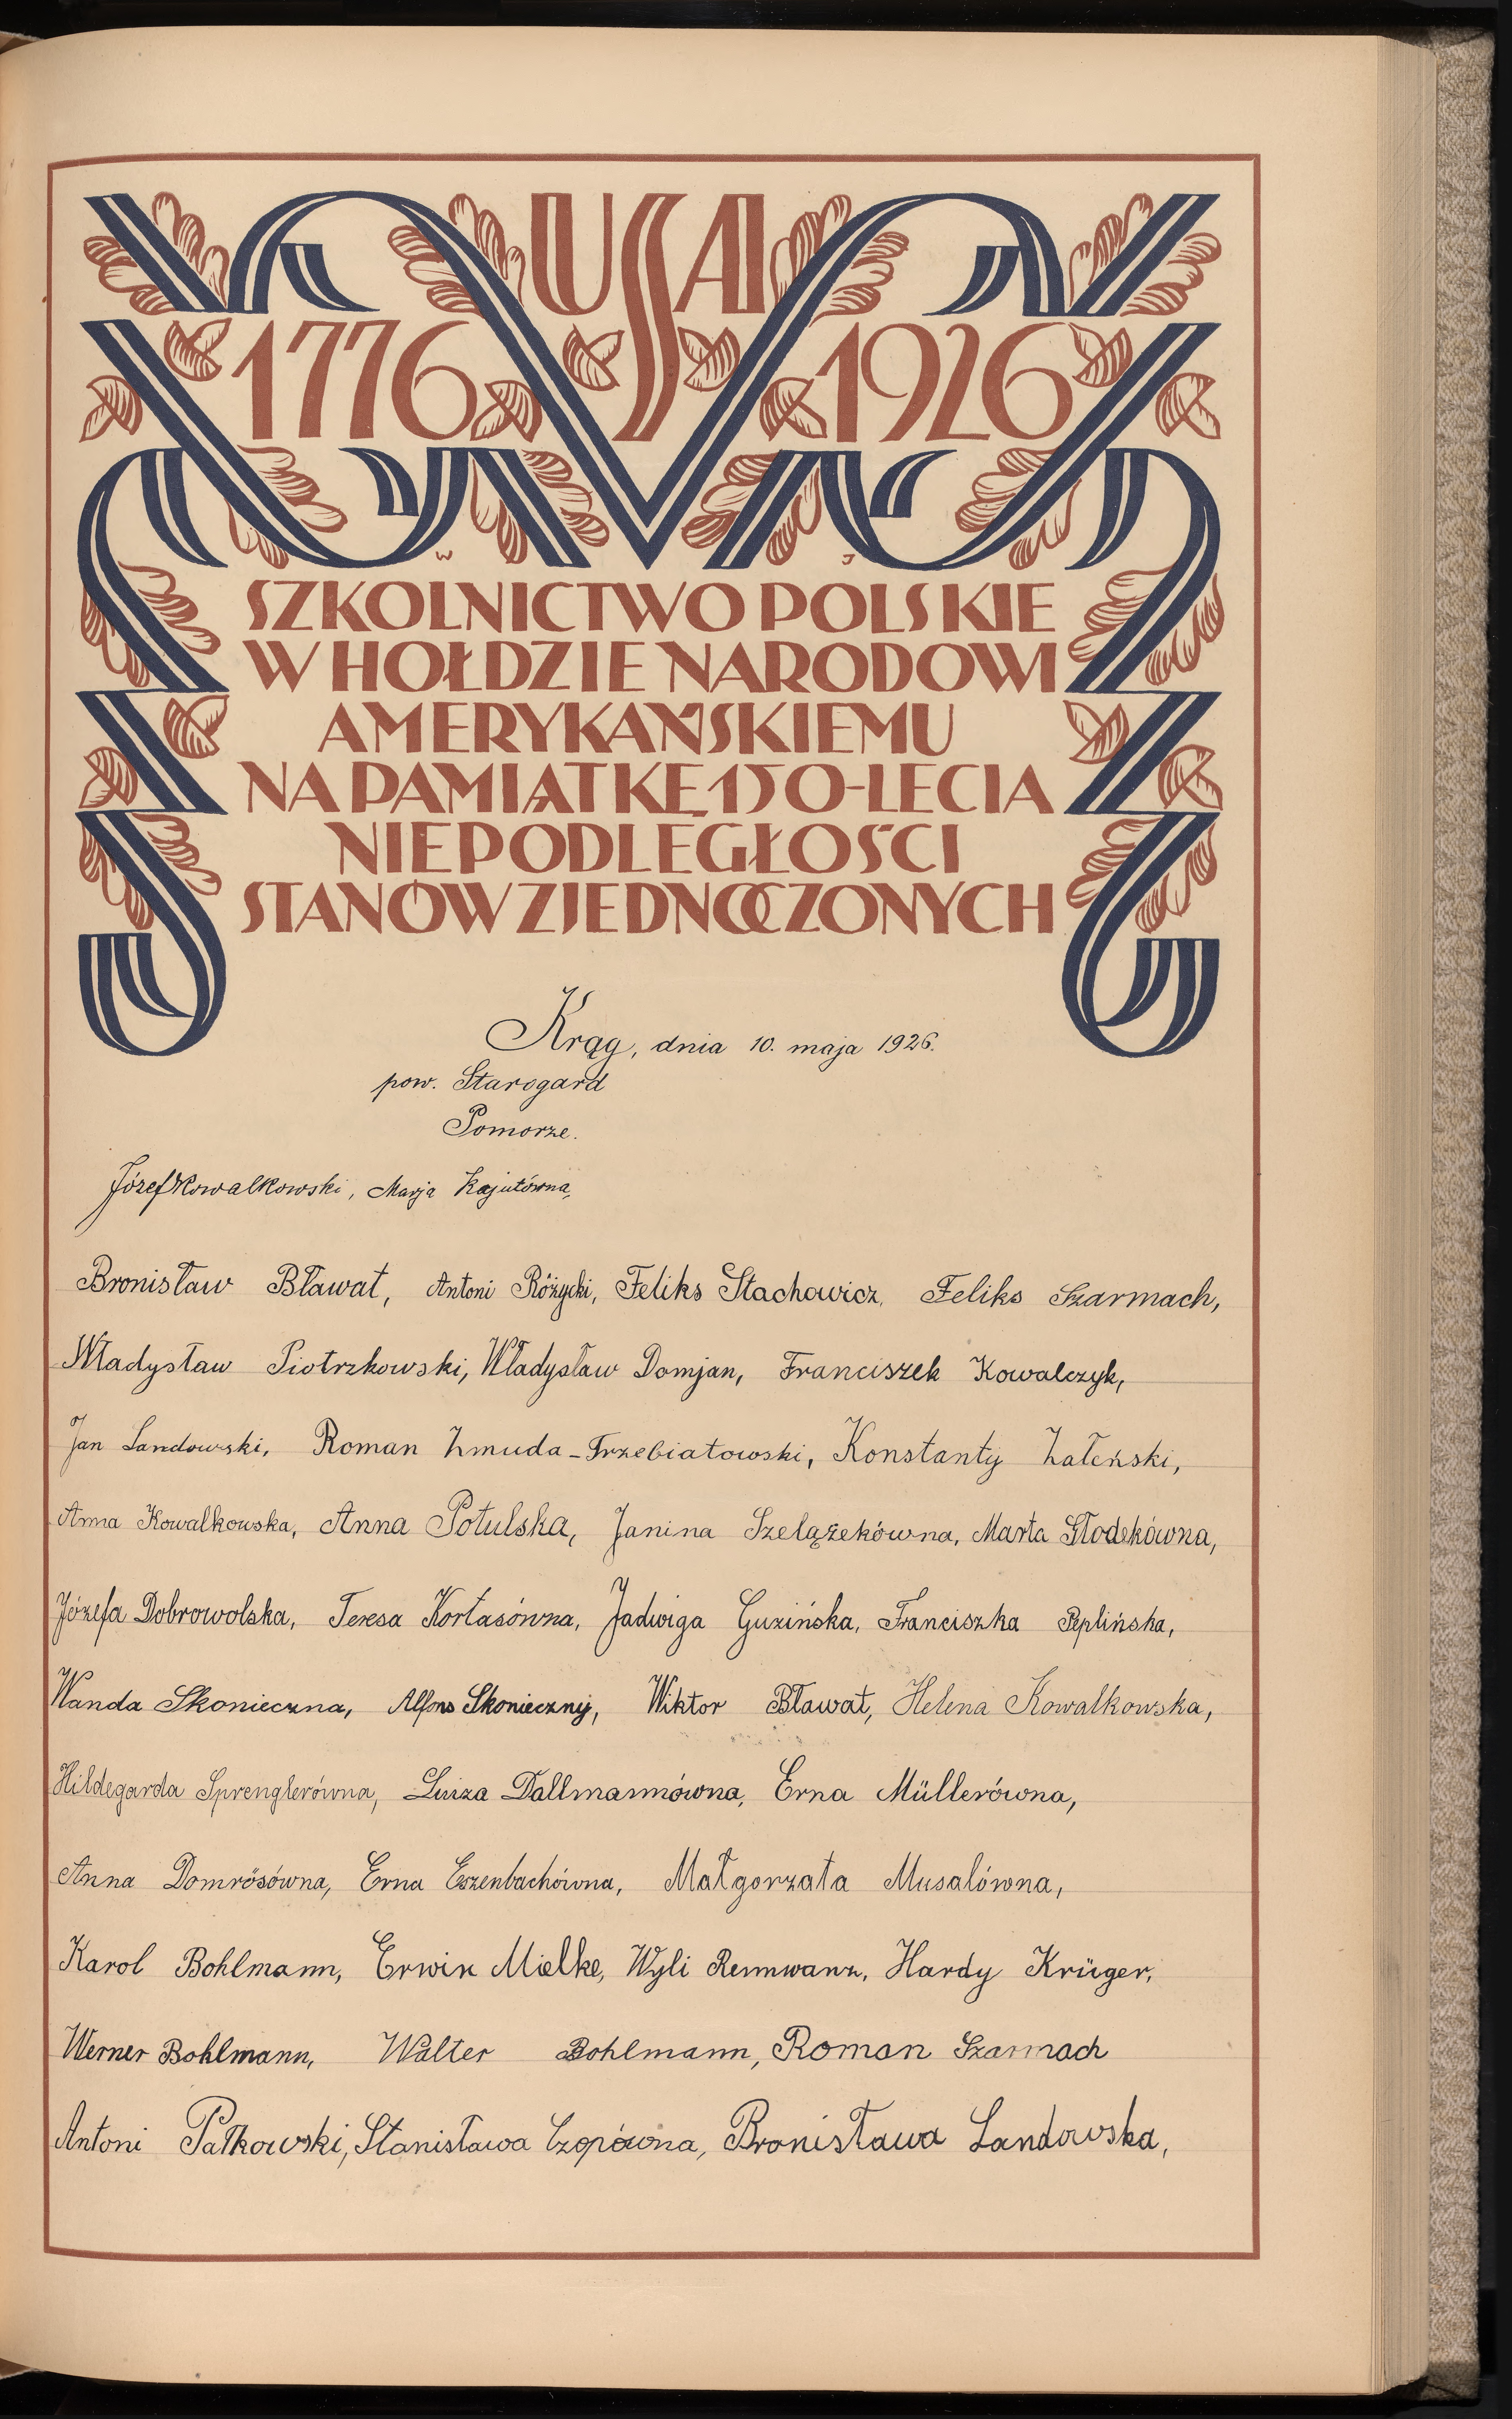 USA
1776 1926
W J
SZKOLNICTWO POLSKIE
W HOŁDZIE NARODOWI
AMERYKAŃSKIEMU
NA PAMIĄTKĘ 150-LECIA
NIEPODLEGŁOŚCI
STANÓW ZJEDNOCZONYCH
Krąg, dnia 10. maja 1926.
pow. Starogard
Pomorze.
Józef Kowalkowski, Marja Kajutówna,
Bronisław Bławat, Antoni Różycki, Feliks Stachowicz, Feliks Szarmach,
Władysław Piotrzkowski, Władysław Domjan, Franciszek Kowalczyk,
Jan Landowski, Roman Żmuda-Trzebiatowski, Konstanty Załeński,
Anna Kowalkowska, Anna Potulska, Janina Szelążekówna, Marta Głodekówna,
Józefa Dobrowolska, Teresa Kortasówna, Jadwiga Guzińska, Franciszka Peplińska,
Wanda Skonieczna, Alfons Skonieczny, Wiktor Bławat, Helena Kowalkowska,
Hildegarda Sprenglerówna, Luiza Dallmannówna, Erna Müllerówna,
Anna Domrösówna, Erna Eszenbachówna, Małgorzata Musalówna,
Karol Bohlmann, Erwin Mielke, Wyli Rennwanz, Hardy Krüger,
Werner Bohlmann, Walter Bohlmann, Roman Szarmach
Antoni Pałkowski, Stanisława Czopówna, Bronisława Landowska,